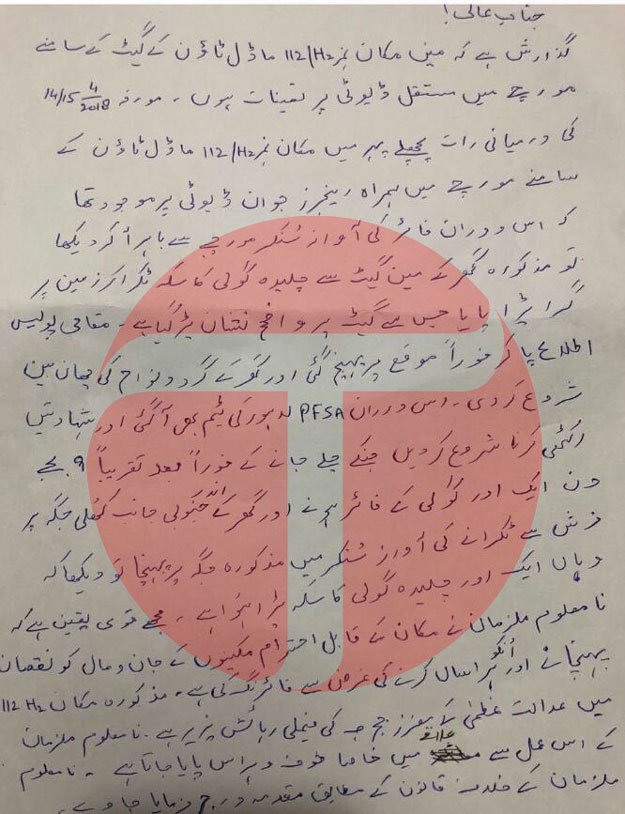 جناب عالی!
گذارش ہے کہ میں مکان نمبر 112/H2 ماڈل ٹاؤن کے گیٹ کے سامنے
مورچے میں مستقل ڈیوٹی پر تعینات ہوں۔ مورخہ 14/15 4 2018
کی درمیانی رات پچھلے پہر میں مکان نمبر 112/H2 ماڈل ٹاؤن کے
سامنے مورچے میں ہمراہ رینجرز جوان ڈیوٹی پر موجود تھا
کہ اس دوران فائر کی آواز سُنکر مورچے سے باہر آ کر دیکھا
تو مذکورہ گھر کے مین گیٹ سے چلیدہ گولی کا سکہ ٹکرا کر زمین پر
گرا پڑا پایا جس سے گیٹ پر واضح نشان پڑ گیا ہے۔ مقامی پولیس
اطلاع پا کر فوراً موقع پر پہنچ گئی اور گھر کے گرد و نواح کی چھان بین
شروع کر دی۔ اس دوران PFSA لاہور کی ٹیم بھی آ گئی اور شہادتیں
اکٹھی کرنا شروع کر دیں جنکے چلے جانے کے فوراً بعد تقریباً 9 بجے
دن ایک اور گولی کے فائر ہونے اور گھر کے اندر جنوبی جانب کھلی جگہ پر
فرش سے ٹکرانے کی آواز سُنکر میں مذکورہ جگہ پر پہنچا تو دیکھا کہ
وہاں ایک اور چلیدہ گولی کا سکہ پڑا ہوا ہے۔ مجھے قوی یقین ہے کہ
نا معلوم ملزمان نے مکان کے قابل احترام مکینوں کے جان و مال کو نقصان
پہنچانے اور اُنکو ہراساں کرنے کی غرض سے فائرنگ کی ہے۔ مذکورہ مکان 112 H2
میں عدالت عظمیٰ کے معزز جج کی فیملی رہائش پزیر ہے۔ نا معلوم ملزمان
کے اس عمل سے علاقے میں خاصا خوف و ہراس پایا جاتا ہے۔ نا معلوم
ملزمان کے خلاف قانون کے مطابق مقدمہ درج فرمایا جاوے۔